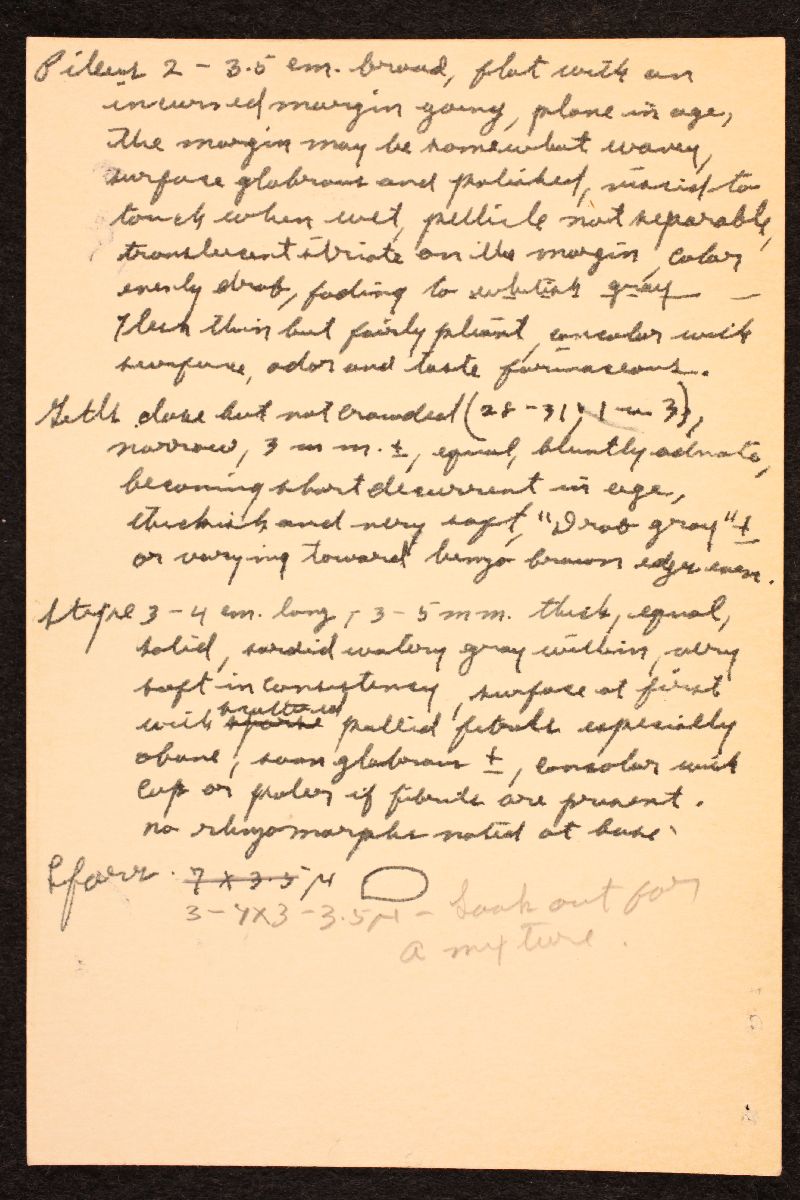 Pileus 2 - 3.5 cm. broad, flat with an
incurved margin young, plane in age,
the margin may be somewhat wavey,
surface glabrous and polished, viscid to
touch when wet, pellicle not separable,
translucent striate on the margin, color
evenly drab, fading to whitish gray —
Flesh thin but fairly pliant, concolor with
surface, odor and taste farinaceous.
Gills close but not crowded (28 - 31; 1 - 3),
narrow, 3 mm. ±, equal, bluntly adnate,
becoming short decurrent in age,
thickish and very soft, "Drab gray" ±
or varying toward benzo brown edge even.
Stipe 3 - 4 cm. long, 3 - 5 mm. thick, equal,
solid, sordid watery gray within, very
soft in consistency, surface at first
with sparse scattered pallid fibrils especially
above, soon glabrous ±, concolor with
cap or paler if fibrils are present.
no rhizomorphs noted at base.
Spores. 7 x 3.5 μ
3 - 4 x 3 - 3.5 μ - Look out for
a mixture.